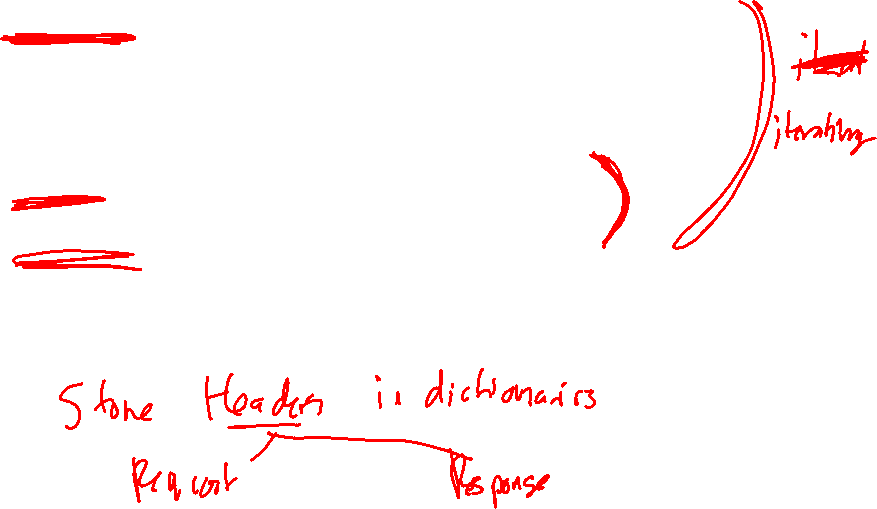 iterating
Store Headers in dictionaries
Request Response